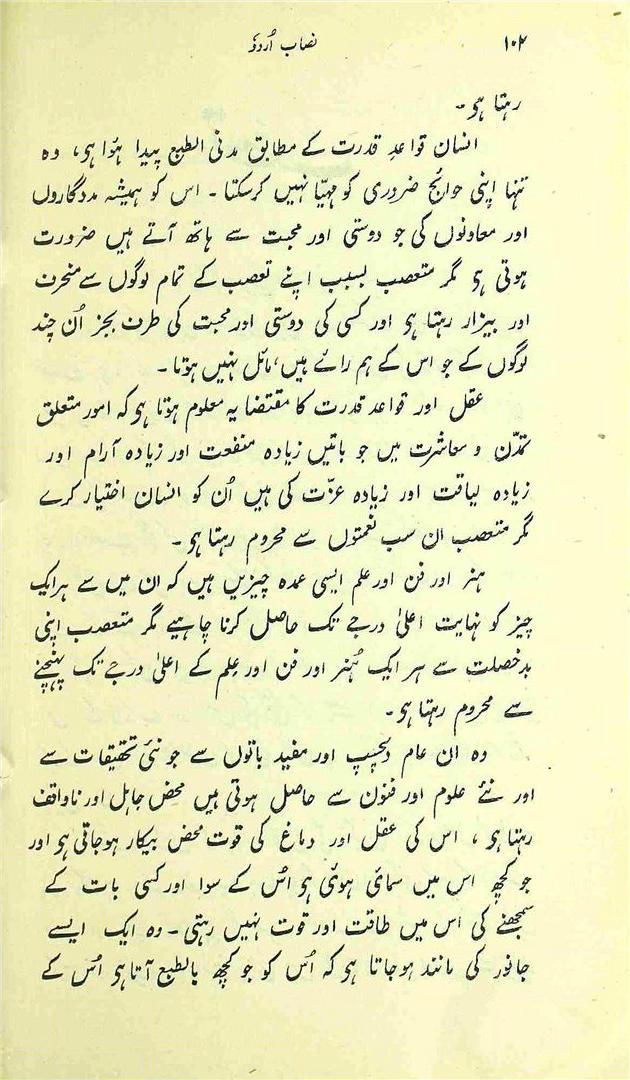 ۱۰۲ نصاب اُردوٗ
رہتا ہی۔
انسان قواعدِ قدرت کے مطابق مدنی الطبع پیدا ہؤا ہی، وہ
تنہا اپنی حوائجِ ضروری کو مہیّا نہیں کرسکتا۔ اس کو ہمیشہ مددگاروں
اور معاونوں کی جو دوستی اور محبت سے ہاتھ آتے ہیں ضرورت
ہوتی ہی مگر متعصب بسبب اپنے تعصب کے تمام لوگوں سے منحرف
اور بیزار رہتا ہی اور کسی کی دوستی اور محبت کی طرف بجز اُن چند
لوگوں کے جو اس کے ہم رائے ہیں، مائل نہیں ہوتا۔
عقل اور قواعد قدرت کا مقتضا یہ معلوم ہوتا ہی کہ امور متعلق
تمدّن و معاشرت میں جو باتیں زیادہ منفعت اور زیادہ آرام اور
زیادہ لیاقت اور زیادہ عزّت کی ہیں اُن کو انسان اختیار کرے
مگر متعصب ان سب نعمتوں سے محروم رہتا ہی۔
ہنر اور فن اور علم ایسی عمدہ چیزیں ہیں کہ ان میں سے ہرایک
چیز کو نہایت اعلیٰ درجے تک حاصل کرنا چاہیے مگر متعصب اپنی
بدخصلت سے ہر ایک ہُنر اور فن اور عِلم کے اعلیٰ درجے تک پہنچنے
سے محروم رہتا ہی۔
وہ ان عام دلچسپ اور مفید باتوں سے جو نئی تحقیقات سے
اور نئے علوم اور فنون سے حاصل ہوتی ہیں محض جاہل اور ناواقف
رہتا ہی، اس کی عقل اور دماغ کی قوت محض بیکار ہوجاتی ہی اور
جو کچھ اس میں سمائی ہوئی ہو اُس کے سوا اور کسی بات کے
سمجھنے کی اس میں طاقت اور قوت نہیں رہتی۔ وہ ایک ایسے
جانور کی مانند ہوجاتا ہی کہ اُس کو جو کچھ بالطبع آتا ہی اُس کے